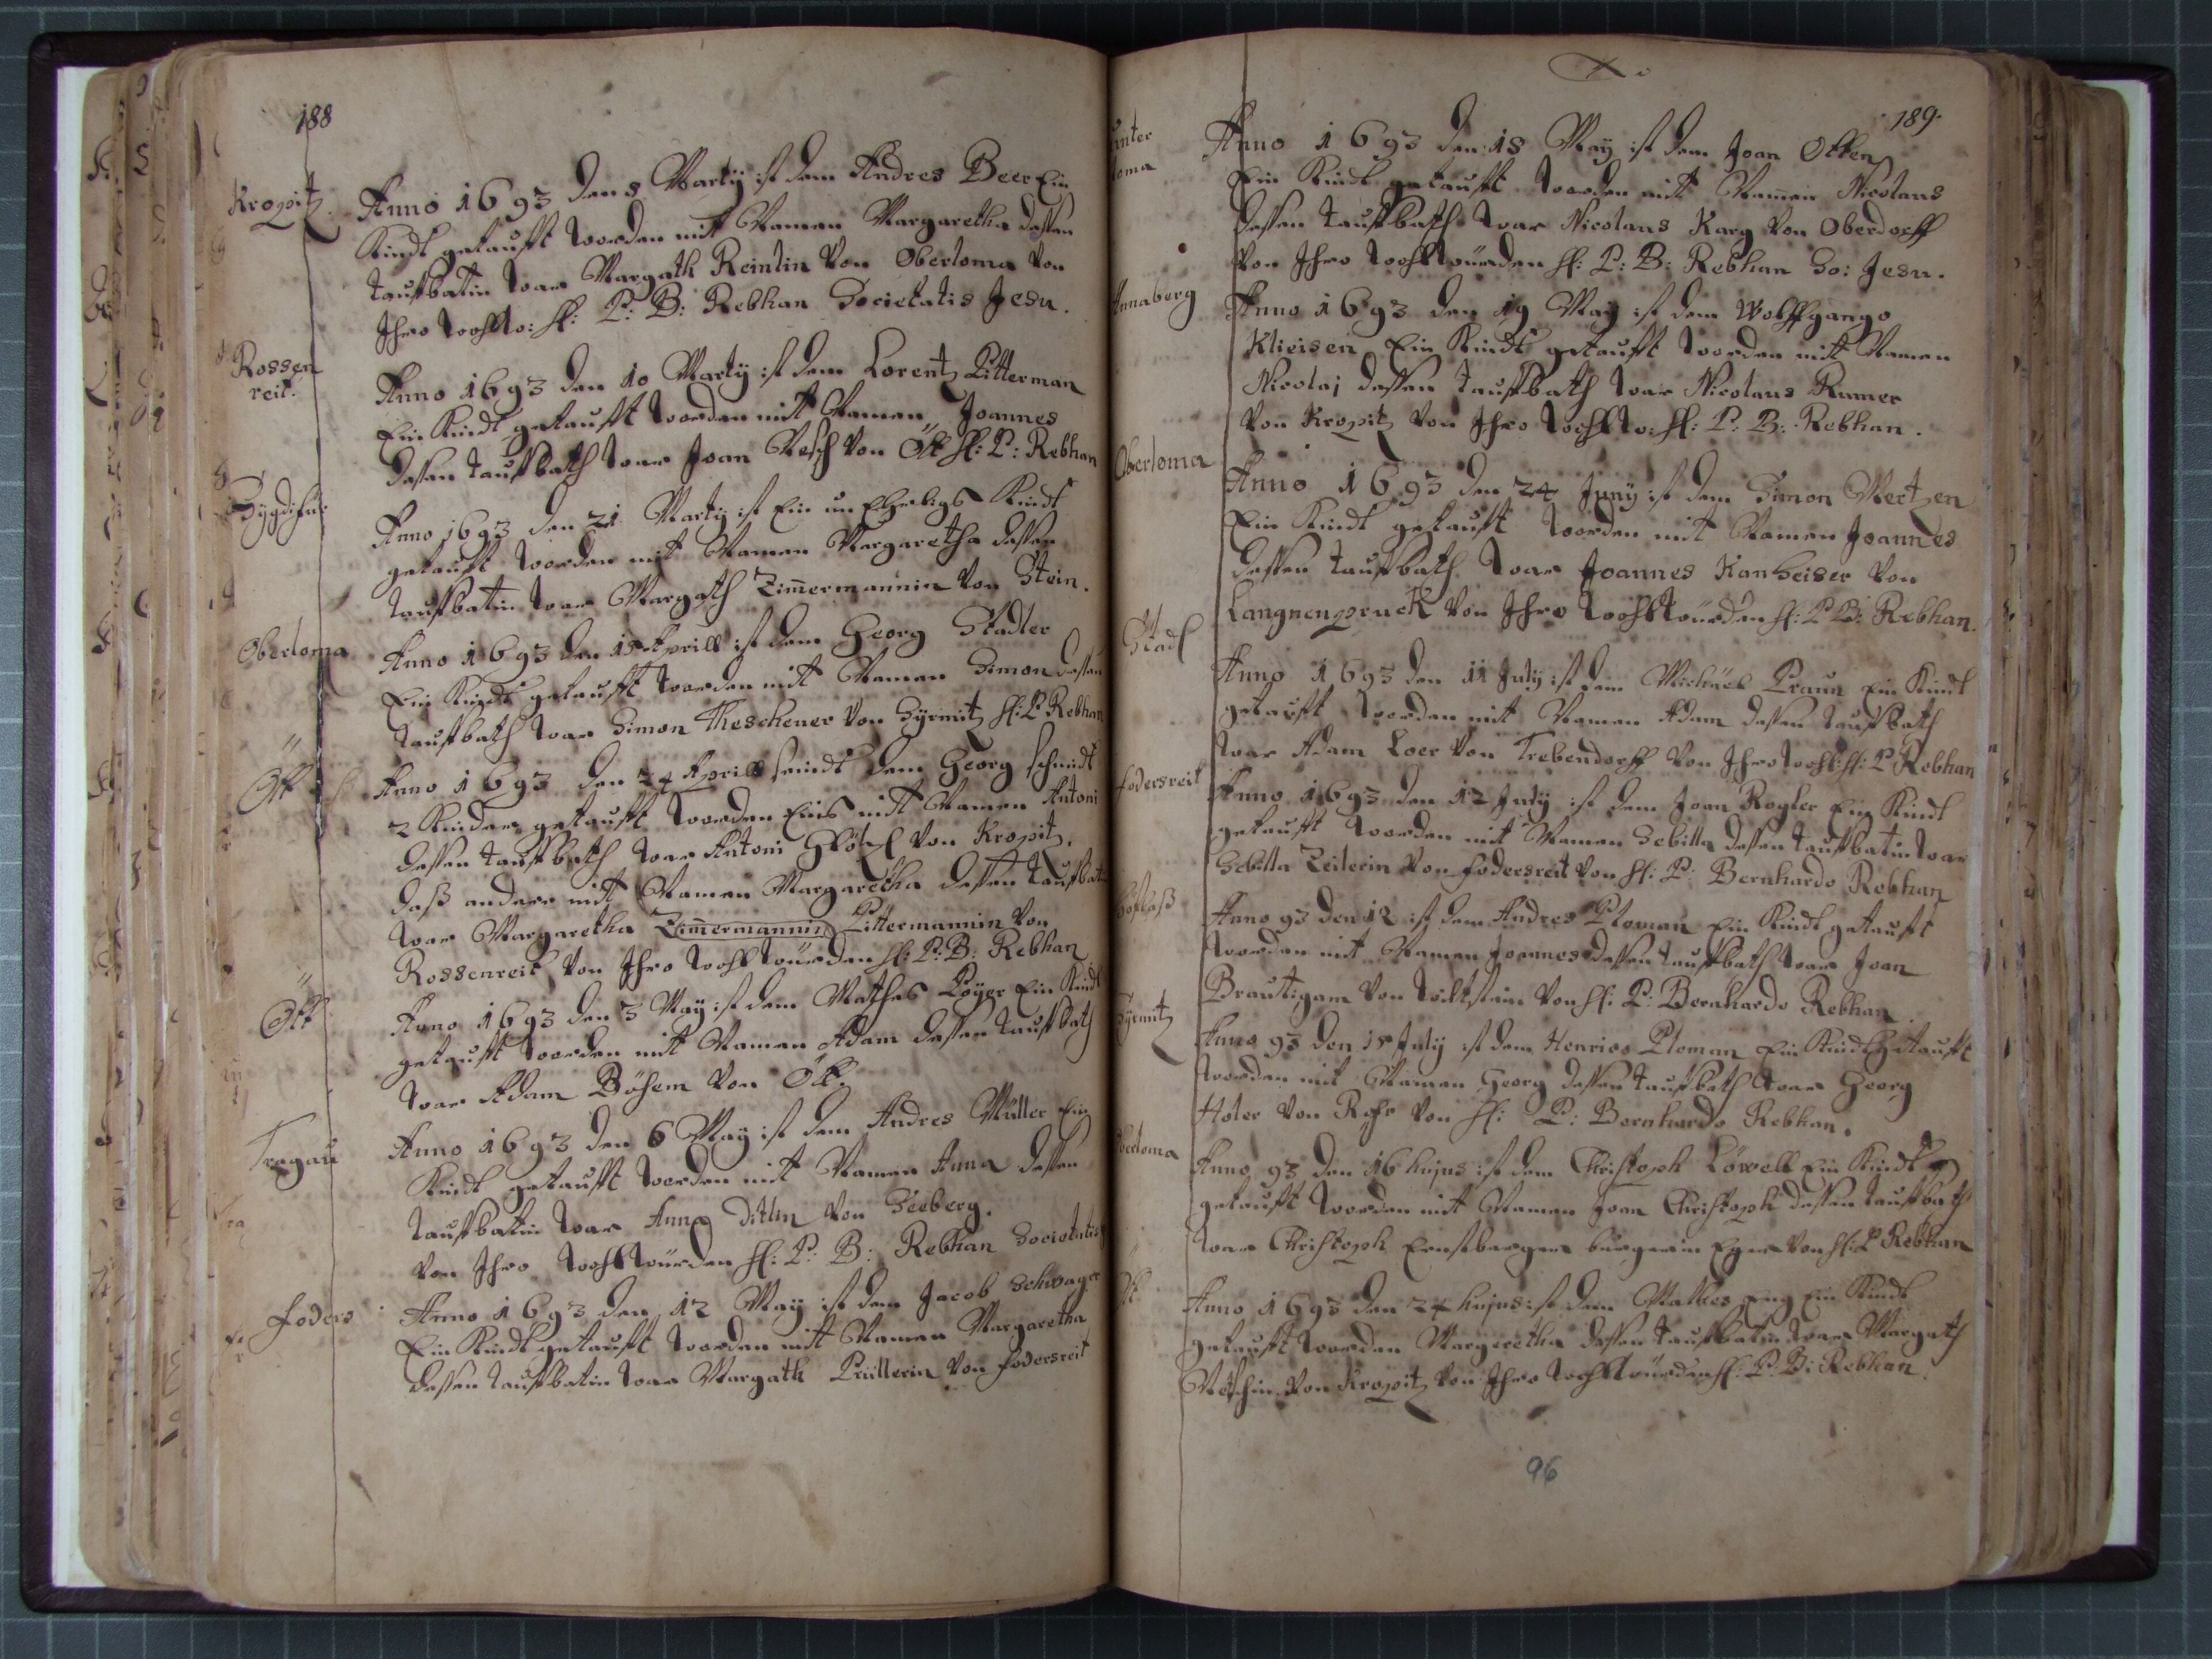 188
Kropitz
Anno 1693 den 8 Martÿ ist dem Andres Beer Ein
Kindt getaufft worden mit Namen Margaretha dessen
taufbatin war Margath Reinlin von Oberloma von
Ihro wohlw: H: P: B: Rebhan Societatis Jesu.
Rossen
reit.
Anno 1693 den 10 Martÿ ist dem Lorentz Pitterman
Ein Kindt getaufft worden mit Namen Joannes
dessen taufbath war Joan Resch von Öтt H: P: Rebhan
Anno 1693 den 21 Martÿ ist Ein un Eheligs Kindt
getaufft worden mit Namen Margaretha dessen
taufbatin war Margath Zim̅ermannin von Stein.
Oberloma
Anno 1693 den 15 Aprill ist dem Georg Stadler
Ein Kindt getaufft worden mit Namen Simon dessen
taufbath war Simon Theschener von Sÿrmitz H: P Rebhan
Ött
Anno 1693 den 24 Aprill seindt dem Georg schmidt
2 Kinder getaufft worden Eins mit Namen Antoni
dessen taufbath war Antoni von Kropitz.
daß ander mit Namen Margaretha dessen taufbatin
war Margaretha Zim̅ermannin Pittermannin von
Rossenreit von Ihro wohlwürden H: P: B: Rebhan
Ött
Anno 1693 den 3 Maÿ ist dem Mathes Löÿer Ein Kindt
getaufft worden mit Namen Adam dessen taufbath
war Adam Böhem von Ött.
Tregau
Anno 1693 den 6 Maÿ ist dem Andres Müller Ein
Kindt getaufft worden mit Namen Anna dessen
taufbatin war Anna Ditlin von Seeberg.
von Ihro wohlwürden H: P: B: Rebhan Societatis
foders
Anno 1693 den 12 Maÿ ist dem Jacob Schwager
Ein Kindt getaufft worden mit Namen Margaretha
dessen taufbatin war Margath Prüllerin von fodersreit
189.
unter
loma
Anno 1693 den 18 Maÿ ist dem Joan Otten
Ein Kindt getaufft worden mit Namen Nicolaus
dessen taufbath war Nicolaus Karg von Oberdorff
von Ihro wohlwürden H: P: B: Rebhan So: Jesu.
Annaberg
Anno 1693 den 19 Maÿ ist dem Wolffgango
Klieisen Ein Kindt getaufft worden mit Namen
Nicolaj dessen taufbath war Nicolaus Rumer
von Kropitz von Ihro wohlw: H: P: B: Rebhan.
Oberloma
Anno 1693 den 24 Junÿ ist dem Simon Mertzen
Ein Kindt getaufft worden mit Namen Joannes
dessen taufbath war Joannes Kanheiser von
Langnenpruck von Ihro wohlwürden H: P B: Rebhan.
Stadl
Anno 1693 den 11 Julÿ ist dem Michäel Praun Ein Kindt
getaufft worden mit Namen Adam dessen taufbath
war Adam Loer von Trebendorff von Ihro wohl: H: P Rebhan
fodersreit
Anno 1693 den 12 Julÿ ist dem Joan Rogler Ein Kindt
getaufft worden mit Namen Sebilla dessen taufbatin war
Sebilla Zeilerin von fodersreit von H: P: Bernhardo Rebhan
Anno 93 den 12 ist dem Andres Ploman Ein Kindt getaufft
worden mit Namen Joannes dessen taufbath war Joan
Brautigam von wiltstein von H: P: Bernhardo Rebhan.
Sÿrmitz
Anno 93 den 15 Julÿ ist dem Henrico Ploman Ein Kindt getaufft
worden mit Namen Georg dessen taufbath war Georg
Holer von Rohr von H: P: Bernhardo Rebhan.
Oberloma
Anno 93 den 16 hujus ist dem Christoph Löwell Ein Kindt
getaufft worden mit Namen Joan Christoph dessen taufbath
war Christoph Ernstberger burger in Eger von H: P Rebhan
Ött
Anno 1693 den 24 hujus ist dem Mathes Ein Kindt
getaufft worden Margeretha dessen taufbatin war Margath
von Kropitz von Ihro wohlwürden H: P: B: Rebhan.
96